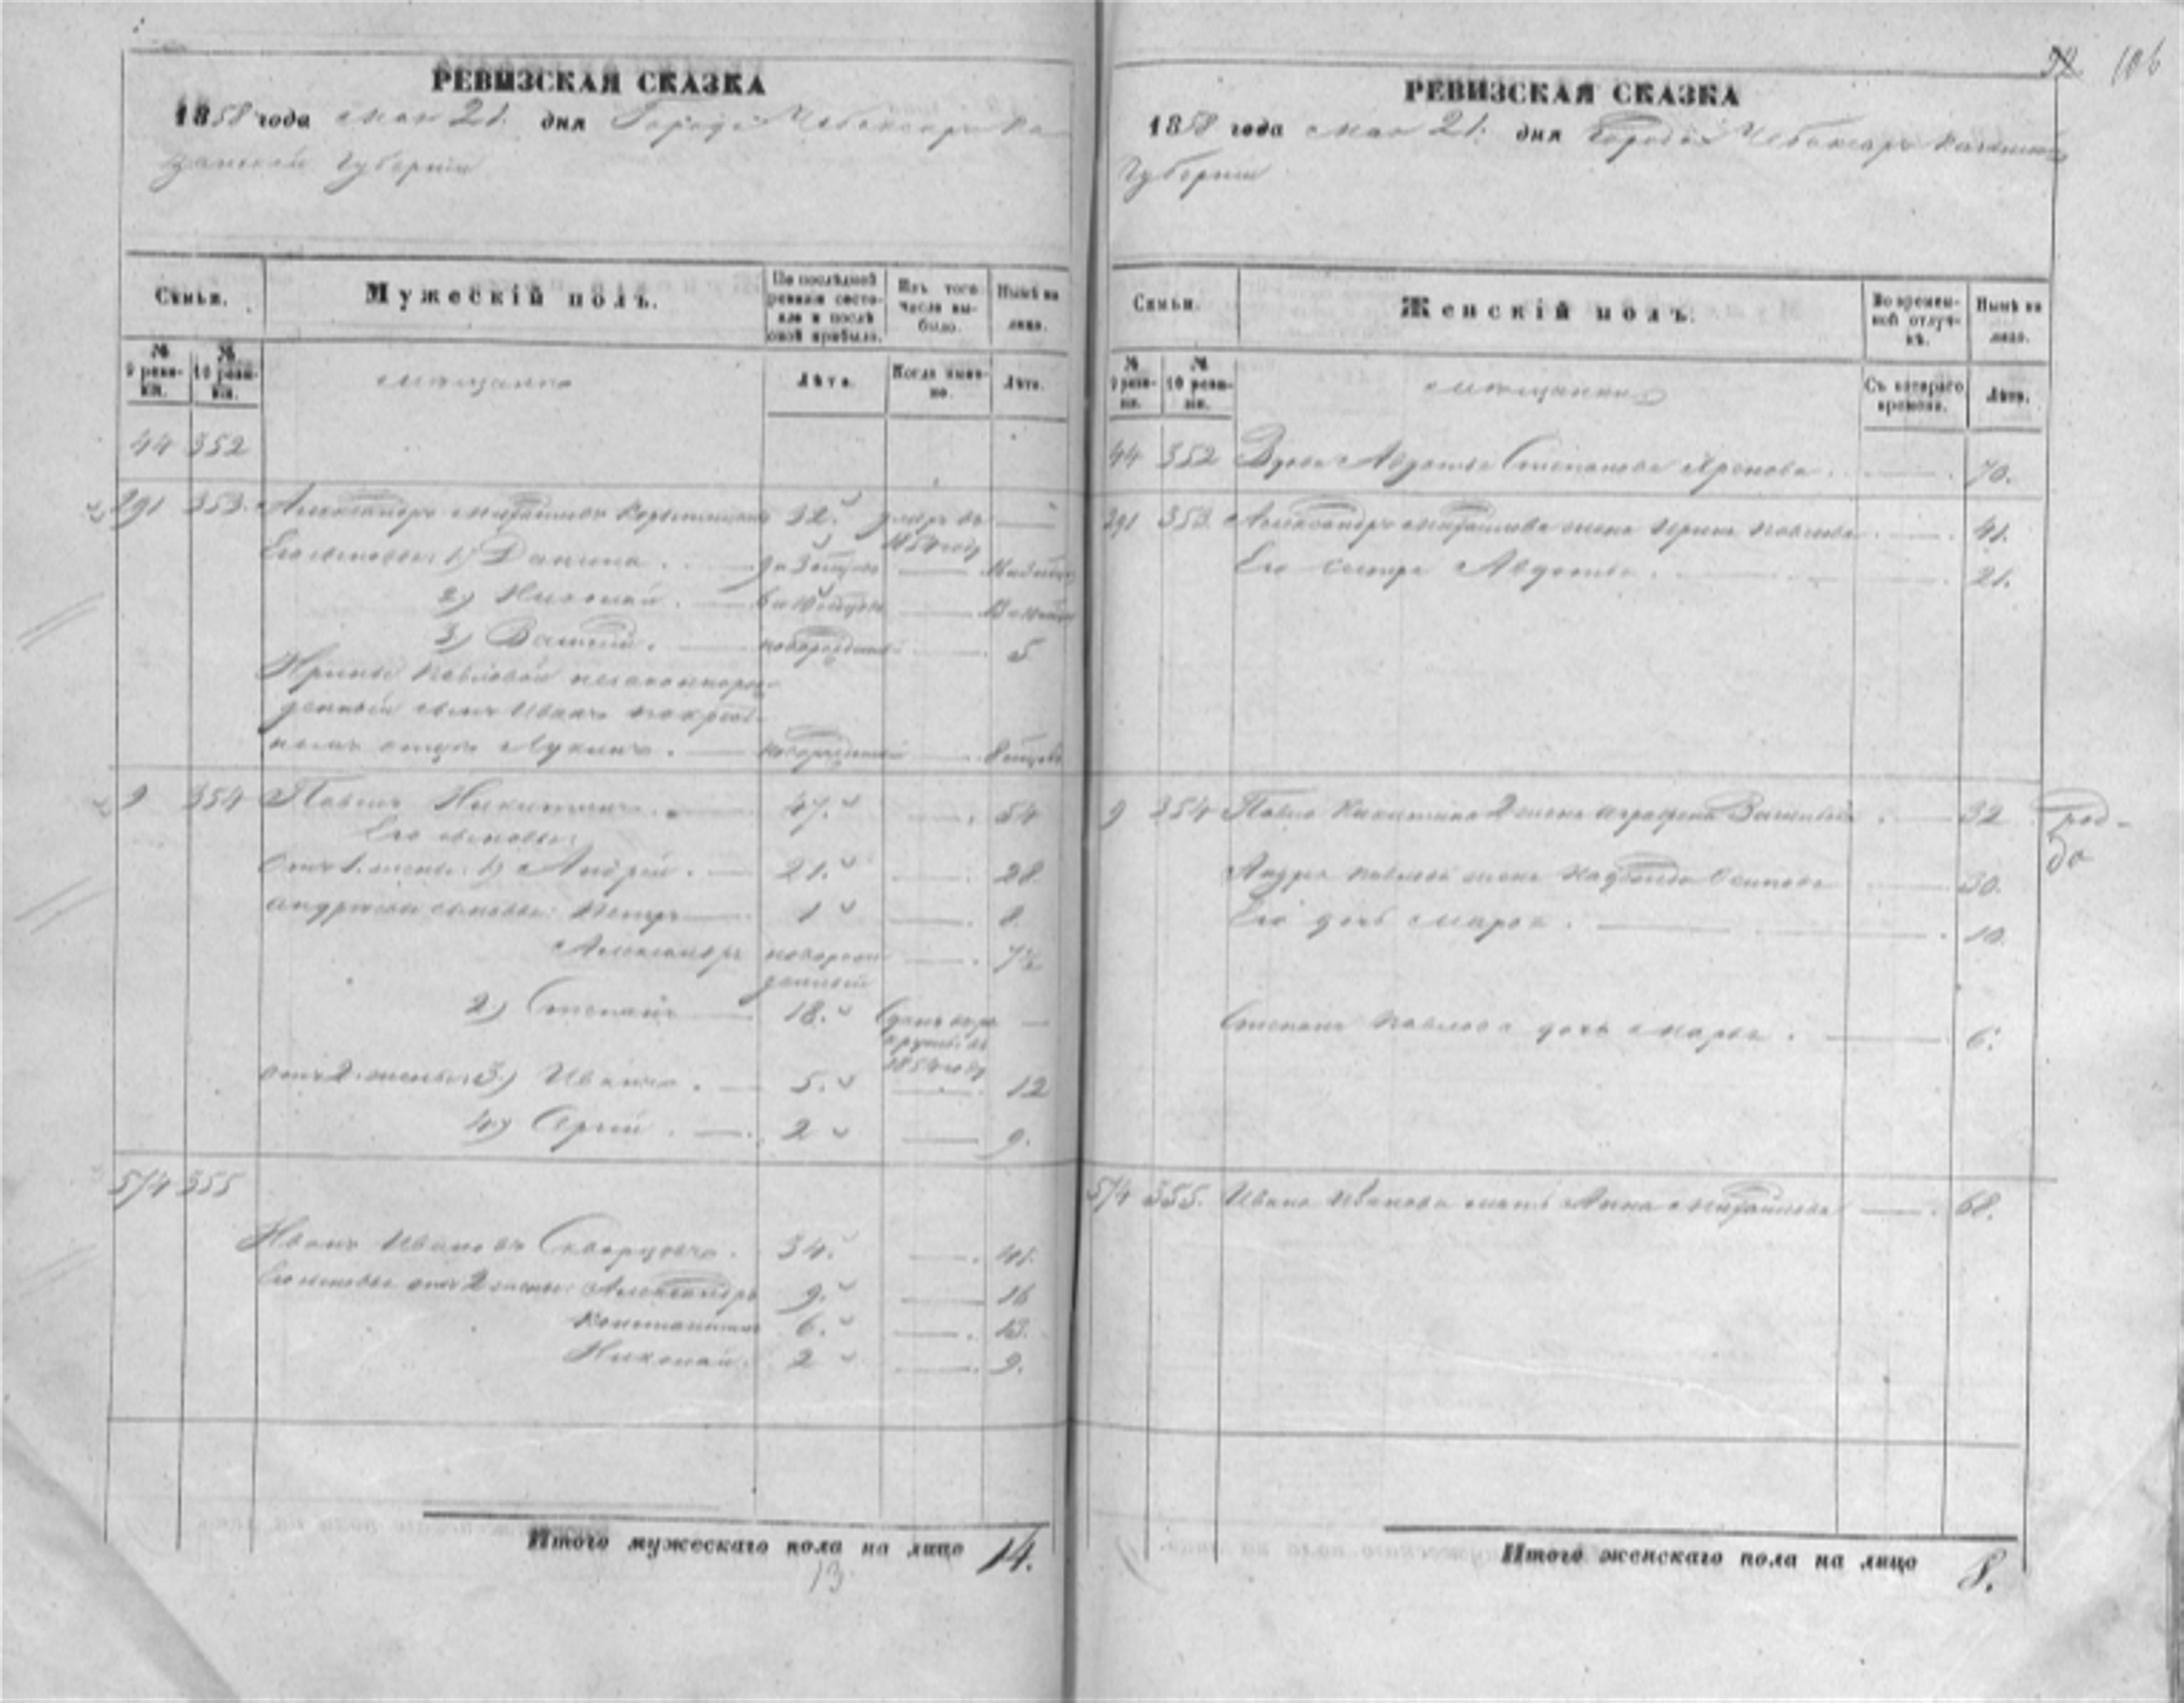 РЕВИЗСКАЯ СКАЗКА
1858 года мая 21. дня Города Чебоксаръ Ка
занской Губерніи
Семьи.
Мужескій полъ.
По послѣдней ревизіи состояло и послѣ оной прибыло.
Изъ того числа выбыло.
Нынѣ на лицо.
№ 9 ревизіи.
№ 10 ревизіи.
мѣщанѣ
Лѣта.
Когда имянно.
Лѣта.
44 352
291 353. Александръ Михайловъ 32. умеръ въ 1854 году —
Его сыновья: 1) Данила.
2) Николай.
3) Василій. новорожденный 5
Ирины Павловой незаконнорож-
денный сынъ Иванъ по крест-
ному отцу Лукинъ. новорожденный
9 354 Павелъ Никитинъ. 47. 54
Его сыновья:
Отъ 1. жены: 1) Андрей. 21. 28
Андреевы сыновья: Петръ 1 8.
Александръ новорож-
денный 7½
2) Степанъ 18. —
1854 году
отъ 2. жены: 3.) Иванъ. 5. 12
4) Сергѣй. 2 9.
574 355
Иванъ Ивановъ Скворцовъ. 34. 41.
Его сыновья отъ 2 жены: Александръ 9. 16
Константинъ 6. 13.
Николай. 2 9.
Итого мужескаго пола на лицо 14.
13
106
РЕВИЗСКАЯ СКАЗКА
1858 года мая 21. дня Города Чебоксаръ Казанской
Губерніи
Семьи.
Женскій полъ.
Во временной отлучкѣ.
Нынѣ на лицо.
№ 9 ревизіи.
№ 10 ревизіи.
мѣщанки
Съ котораго времени.
Лѣта.
44 352 Вдова Авдотья Степанова 70.
291 353. Александра Михайлова жена Ирина Павлова 41.
Его сестра Авдотья. 21.
9 354 Павла Никитина 2 жена Аграфена Васильева 32
Андрея Павлова жена Надежда Осипова 30.
Его дочь Марья. 10.
Степана Павлова дочь Марья. 6.
574 355. Ивана Иванова мать Анна Михайлова 68.
Итого женскаго пола на лицо 8.